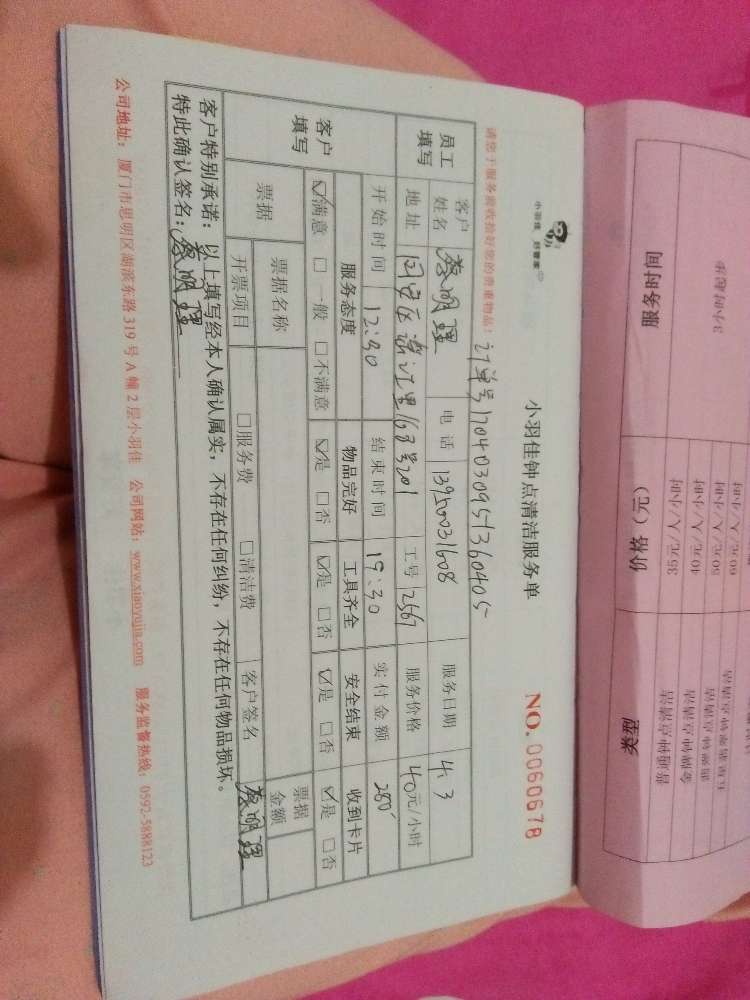 小羽佳 好管家
小羽佳钟点清洁服务单
NO. 0060678
请您于服务验收捡好您的贵重物品!
订单号1704030951360405
员工填写
客户姓名 蔡明理 电话 13950031608 服务日期 4.3
地址 同安区 里168号201 工号 2567 服务价格 40元/小时
开始时间 12:30 结束时间 19:30 实付金额 280
客户填写
服务态度 物品完好 工具齐全 安全结束 收到卡片
☑满意 □一般 □不满意 ☑是 □否 ☑是 □否 ☑是 □否 ☑是 □否
票据 票据名称 票据金额
开票项目 □服务费 □清洁费 客户签名 蔡明理
客户特别承诺:以上填写经本人确认属实,不存在任何纠纷,不存在任何物品损坏。
特此确认签名:蔡明理
公司地址:厦门市思明区湖滨东路319号A幢2层小羽佳 公司网站:www.xiaoyujia.com 服务监督热线:0592-5888123
服务时间 价格(元) 类型
3小时起
35元/人/小时
40元/人/小时
50元/人/小时
60元/人/小时